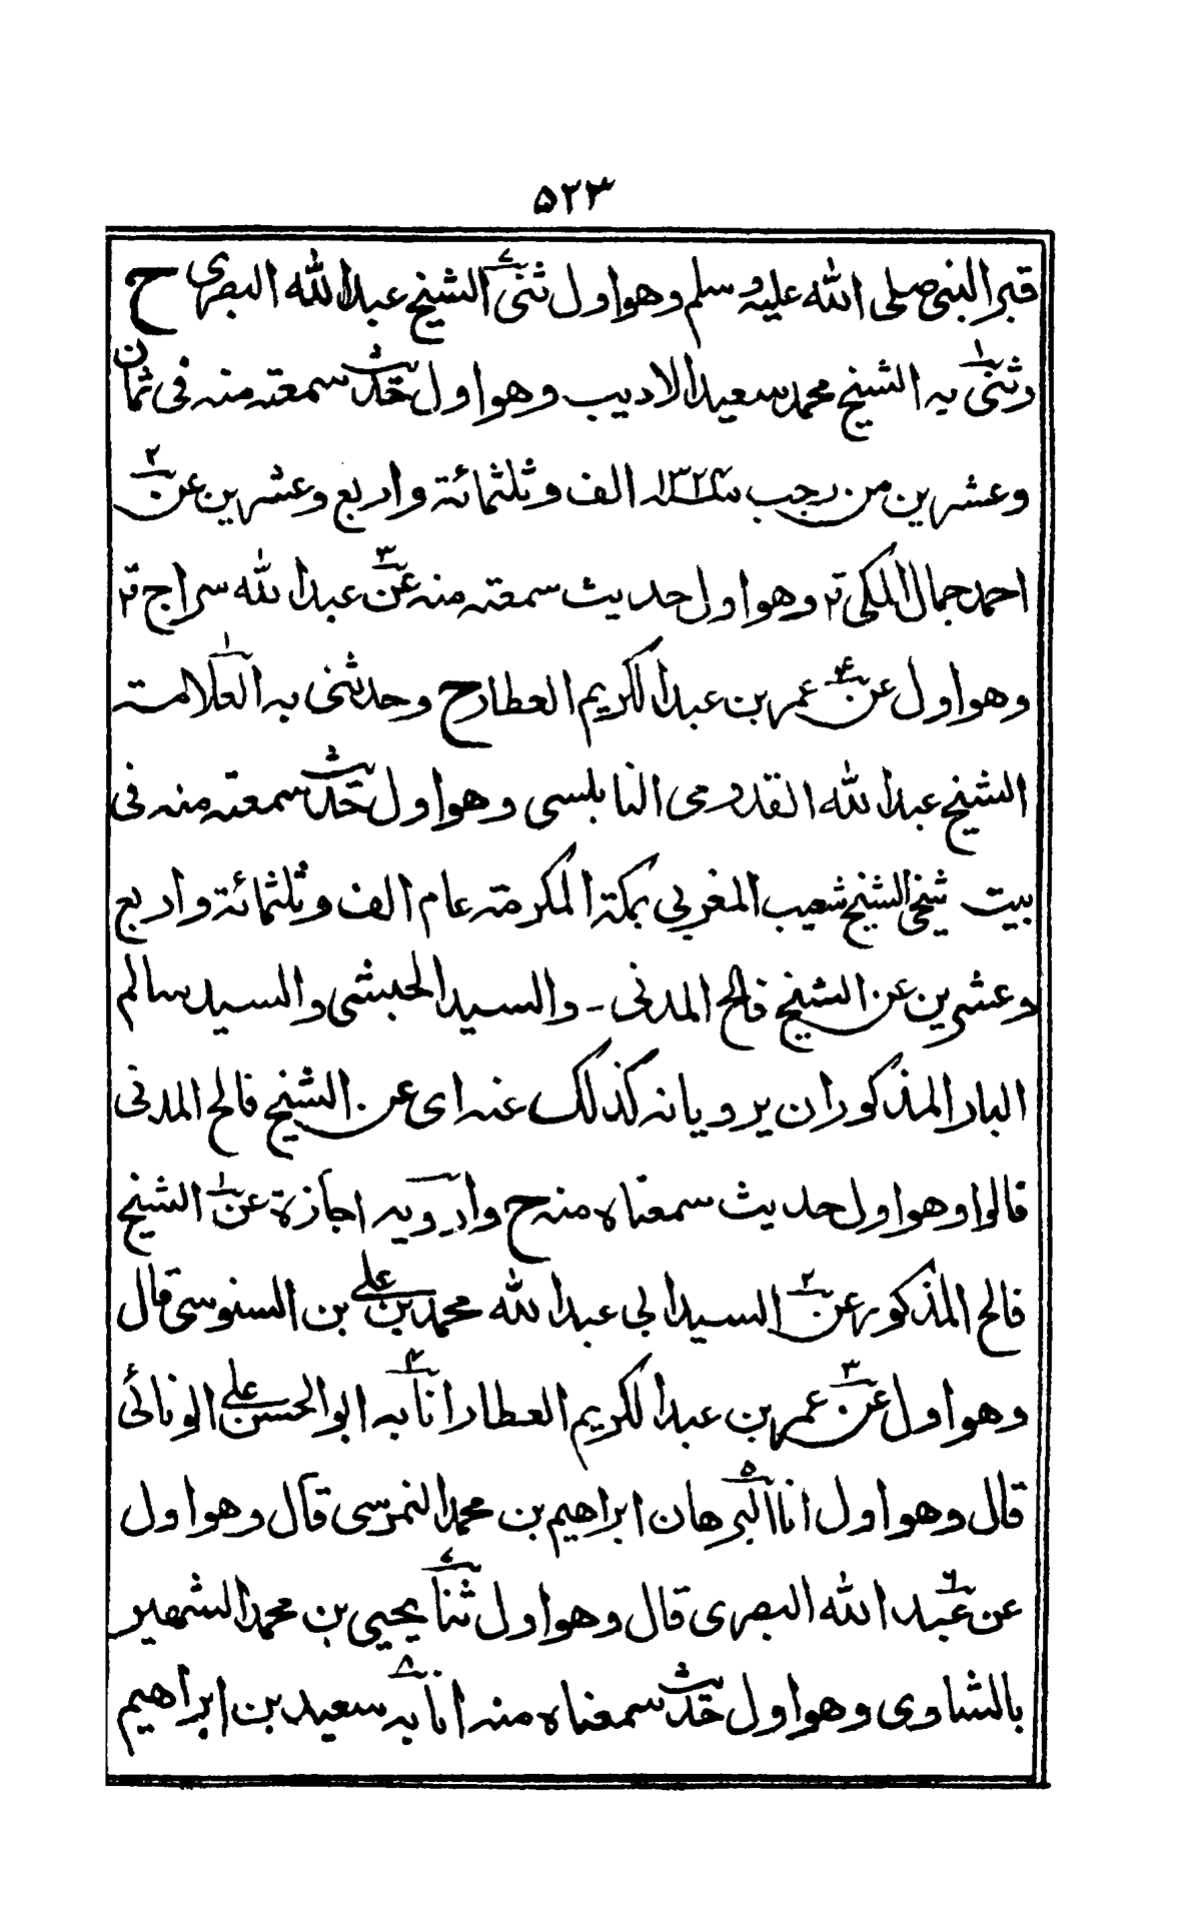 ۵۲۳
قبر النبی صلی الله علیه وسلم وهو اول ثنی الشیخ عبد الله البصری ح
وثنی به الشیخ محمد سعید الادیب وهو اول حدیث سمعته منه فی ثمان
وعشرین من رجب ۱۳۲۴ الف وثلثمائة واربع وعشرین عن
احمد جمال المکی وهو اول حدیث سمعته منه عن عبد الله سراج
وهو اول عن عمر بن عبد الکریم العطار ح وحدثنی به العلامة
الشیخ عبد الله القدومی النابلسی وهو اول حدیث سمعته منه فی
بیت شیخی الشیخ شعیب المغربی بمکة المکرمة عام الف وثلثمائة واربع
وعشرین عن الشیخ فالح المدنی - والسید الحبشی والسید سالم
البار المذکوران یرویانه کذلک عنه ای عن الشیخ فالح المدنی
قالوا وهو اول حدیث سمعناه منه ح وارویه اجازة عن الشیخ
فالح المذکور عن السید ابی عبد الله محمد بن علی بن السنوسی قال
وهو اول عن عمر بن عبد الکریم العطار انا به ابو الحسن علی الونائی
قال وهو اول انا البرهان ابراهیم بن محمد النمرسی قال وهو اول
عن عبد الله البصری قال وهو اول ثنا یحیی بن محمد الشهیر
بالشاوی وهو اول حدیث سمعناه منه انا به سعید بن ابراهیم